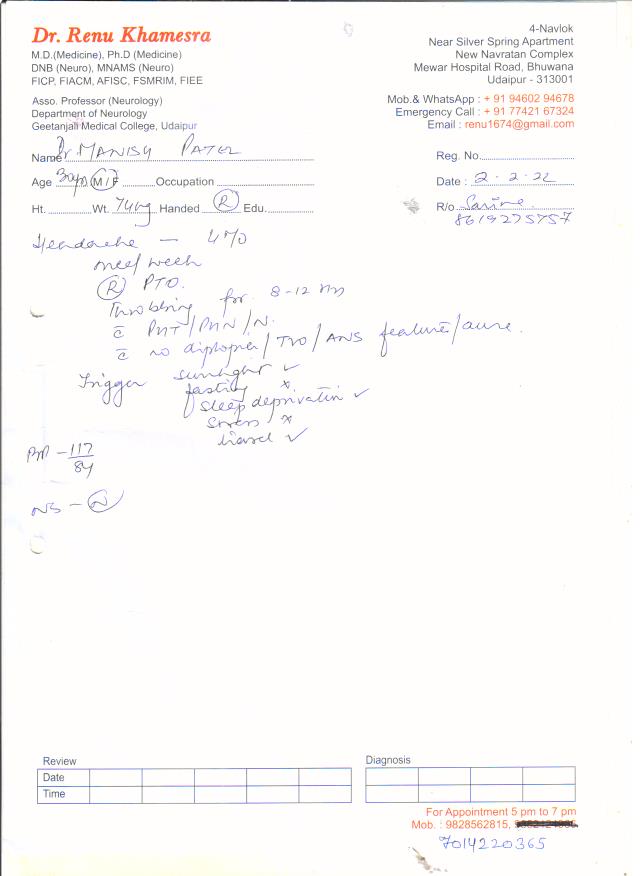 Dr. Renu Khamesra
M.D.(Medicine), Ph.D (Medicine)
DNB (Neuro), MNAMS (Neuro)
FICP, FIACM, AFISC, FSMRIM, FIEE
Asso. Professor (Neurology)
Department of Neurology
Geetanjali Medical College, Udaipur
4-Navlok
Near Silver Spring Apartment
New Navratan Complex
Mewar Hospital Road, Bhuwana
Udaipur - 313001
Mob.& WhatsApp : + 91 94602 94678
Emergency Call : + 91 77421 67324
Email : renu1674@gmail.com
Name Dr. MANISH PATEL
Reg. No.
Age 30 M / F Occupation
Date : 2-2-22
Ht. Wt. 74kg Handed R Edu.
R/o
8619275757
Headache —
week
R PTO.
Throbbing for 8-12 hrs
c̄ PHT/PHN/N.
c̄ no diplopia/TVO/ANS feature/aura.
Trigger sunlight ✓
fasting ×
sleep deprivation ✓
stress ×
travel ✓
117
84
NS - N
Review
Date
Time
Diagnosis
For Appointment 5 pm to 7 pm
Mob. : 9828562815,
7014220365